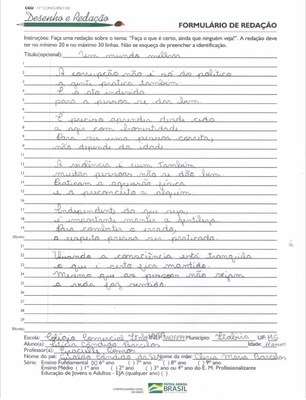 CGU 11º CONCURSO DE
Desenho e Redação
FORMULÁRIO DE REDAÇÃO
Instruções: Faça uma redação sobre o tema: "Faça o que é certo, ainda que ninguém veja!". A redação deve
ter no mínimo 20 e no máximo 30 linhas. Não se esqueça de preencher a identificação.
Título(opcional): Um mundo melhor
A corrupção não é só do político
a gente pratica também
É só ato indevido
para a pessoa se dar bem
É preciso aprender desde cedo
a agir com honestidade
Para ser uma pessoa correta,
não depende da idade
A violência é ruim também
muitas pessoas não se dão bem
Praticam a agressão física
e o preconceito a alguém
Independente do que seja,
é importante manter a gentileza
Para combater o errado,
o respeito precisa ser praticado
Quando a consciência está tranquila
o que é certo fica mantido.
Mesmo que as pessoas não vejam
a vida faz sentido.
Escola: Colégio Comercial Município: Itabira UF: MG
Aluno(a): Letícia Cândido Idade:
Professor(a): Gracielle
Nome do pai: Nome da mãe: Maria
Série: Ensino Fundamental: 6º ano ( ) 7º ano ( ) 8º ano ( ) 9º ano
Ensino Médio ( ) 1º ano ( ) 2º ano ( ) 3º ano ou 4º ano do E. M. Profissionalizante
Educação de Jovens e Adultos - EJA
PÁTRIA AMADA
BRASIL